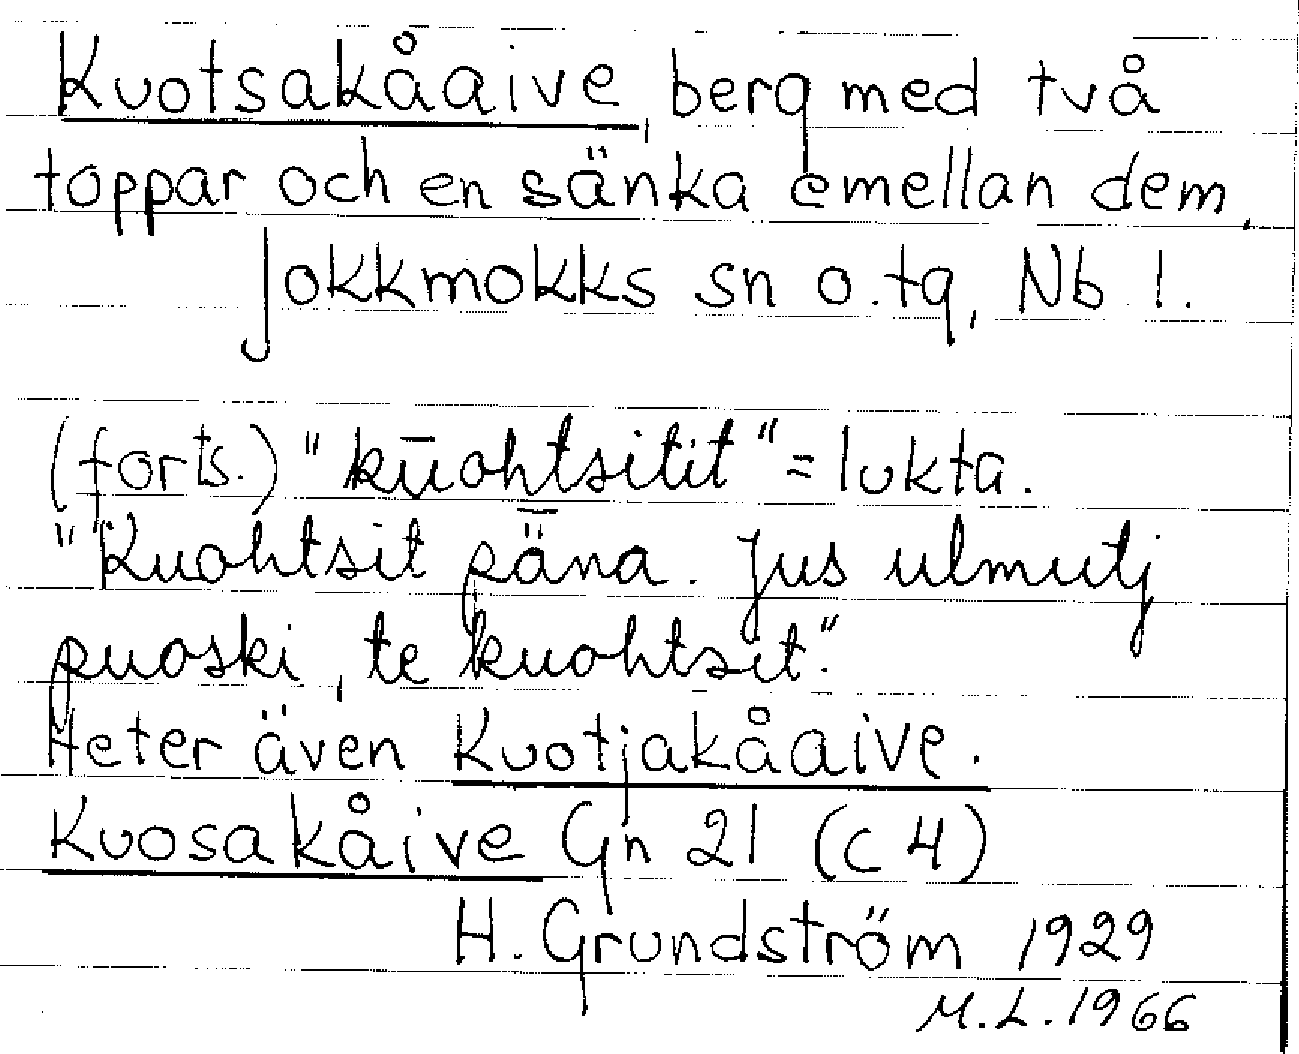 Kuotsakåaive, berg med två
toppar och en sänka emellan dem.
Jokkmokks sn o. tg, Nb l.
(forts.) "kūohtsitit" = lukta.
"Kuohtsit pǟna. Jus ulmutj
puoski, te kuohtsit."
Heter även Kuotjakåaive.
Kuosakåive Gn 21 (c 4)
H. Grundström 1929
M.L. 1966